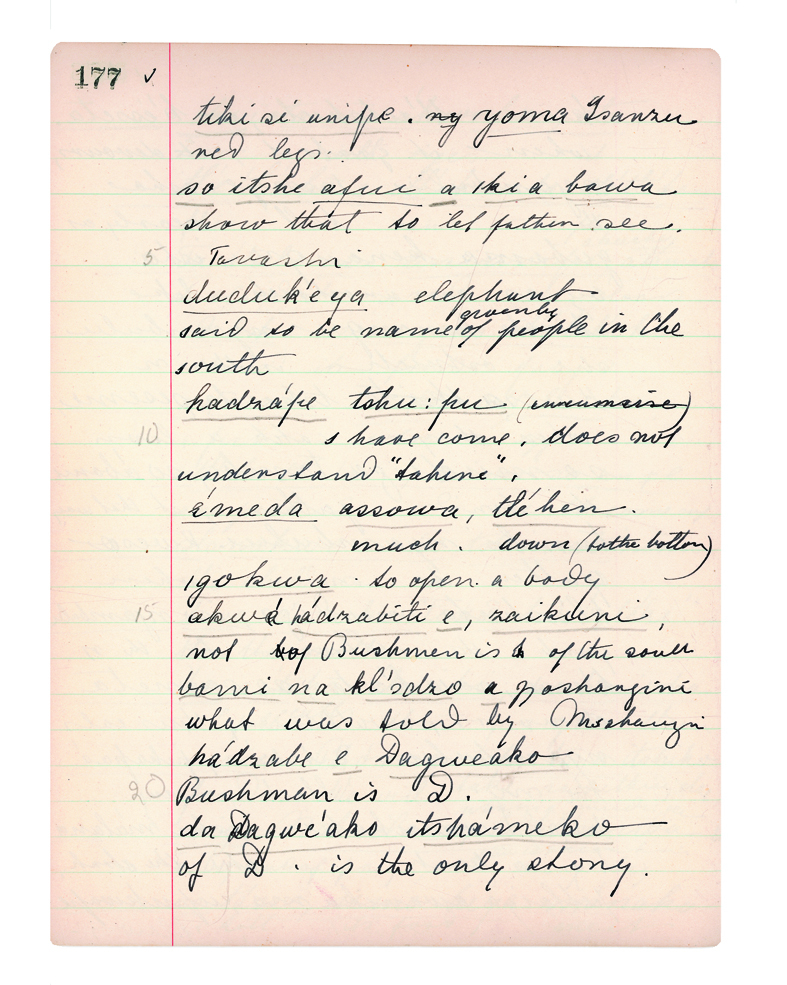 177 ✓
tiki si unipe . ng yoma Isanzu
red legs.
so itshe afui a ikia bawa
show that to let father see.
5 Tavashi
duduk'eya elephant
said to be name of people in the
south
hadzápe tshu: pu (circumcise)
10 s have come. does not
understand "tahine".
émeda assowa, tléhen.
much . down (to the bottom)
igokwa . to open a body
15 akwa hádzabiti e, zaikuni,
not of Bushmen is of the south
bami na kl'sdzo a poshangini
what was told by Moshangin
hádzabe e Dagweáko
20 Bushman is D.
da Dagwé'ako itshámeko
of D . is the only stony.